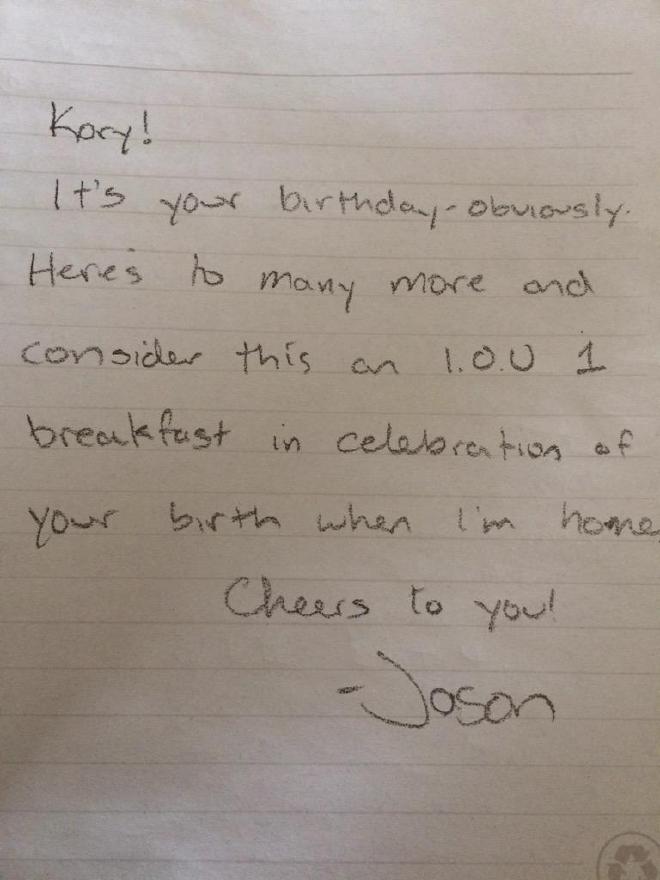 Kory!
It's your birthday-obviously.
Here's to many more and
consider this an I.O.U 1
breakfast in celebration of
your birth when I'm home
Cheers to you!
-Jason